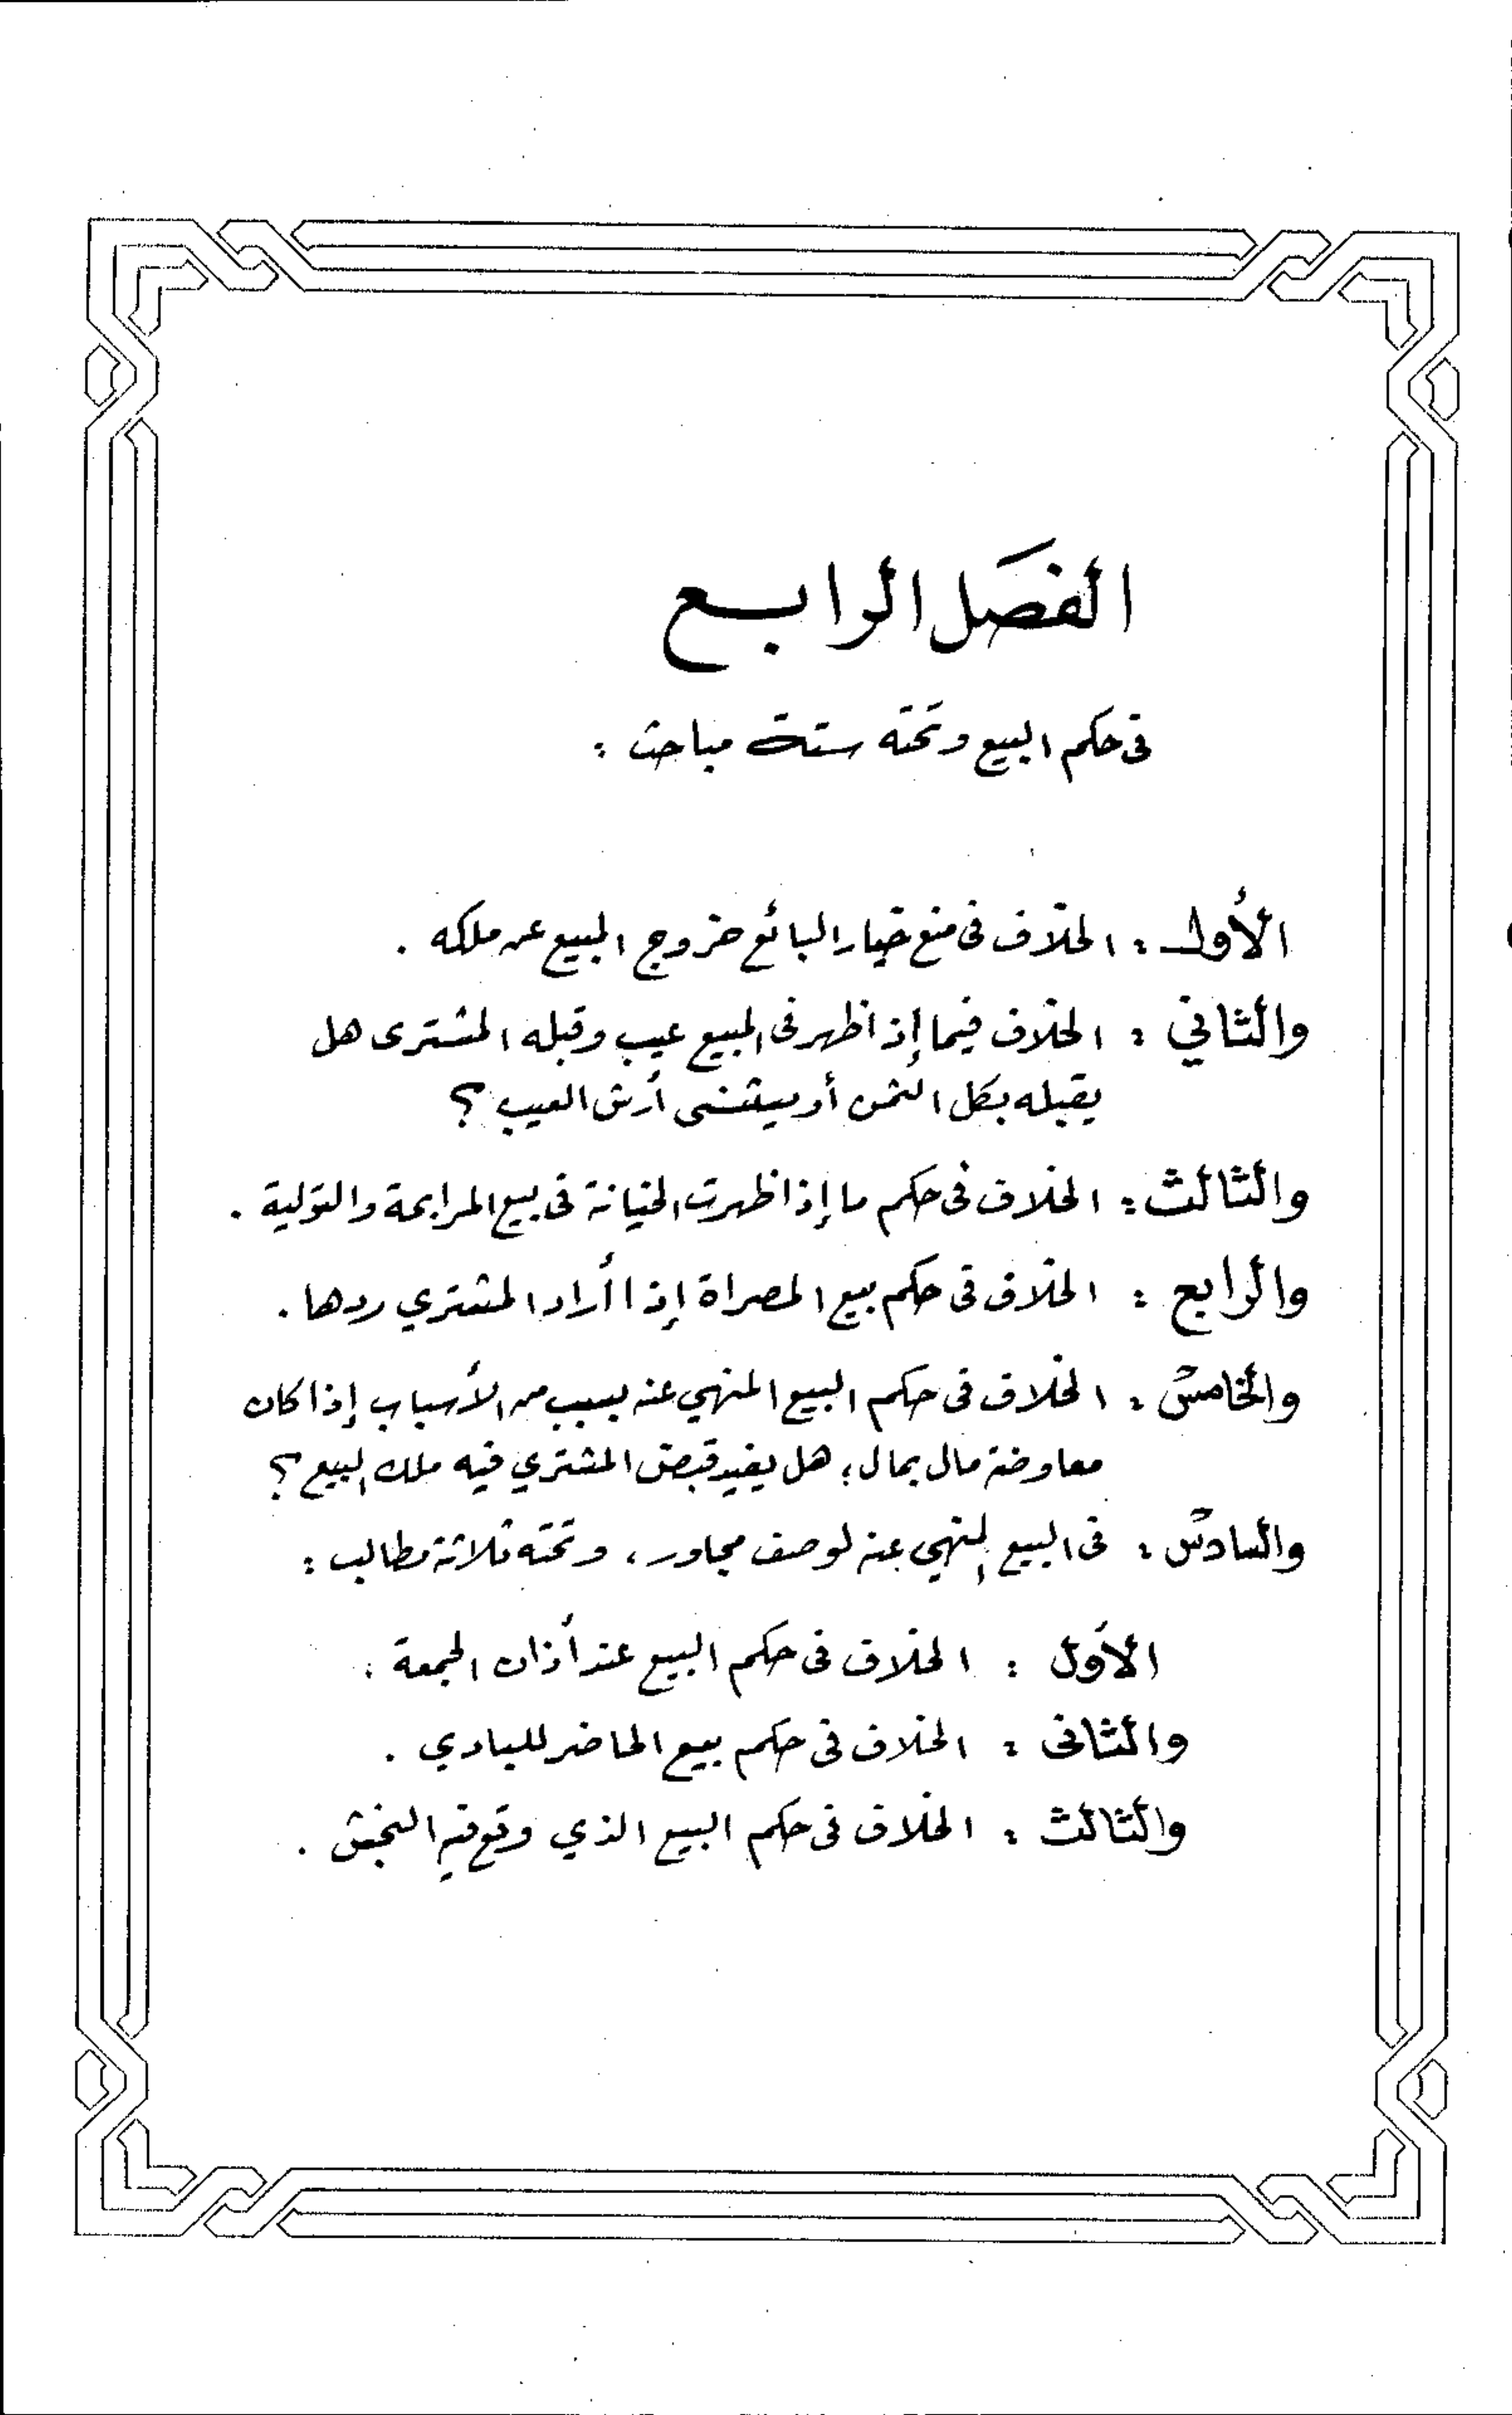 الفصَل الرابع
فى حكم البيع وتحته ستة مباحث :
الأول : الخلاف فى منع خيار البائع خروج المبيع عن ملكه .
والثاني : الخلاف فيما إذا ظهر فى المبيع عيب وقبله المشترى هل
يقبله بكل الثمن أو يستثنى أرش العيب ؟
والثالث : الخلاف فى حكم ما إذا ظهرت الخيانة فى بيع المرابحة والتولية .
والرابع : الخلاف فى حكم بيع المصراة إذا أراد المشتري ردها .
والخامس : الخلاف فى حكم البيع المنهي عنه بسبب من الأسباب إذا كان
معاوضة مال بمال ؛ هل يفيد قبض المشتري فيه ملك البيع ؟
والسادس : فى البيع المنهي عنه لوصف مجاور ، وتحته ثلاثة مطالب :
الأول : الخلاف فى حكم البيع عند أذان الجمعة .
والثانى : الخلاف فى حكم بيع الحاضر للبادي .
والثالث : الخلاف فى حكم البيع الذي وقع فيه النجش .